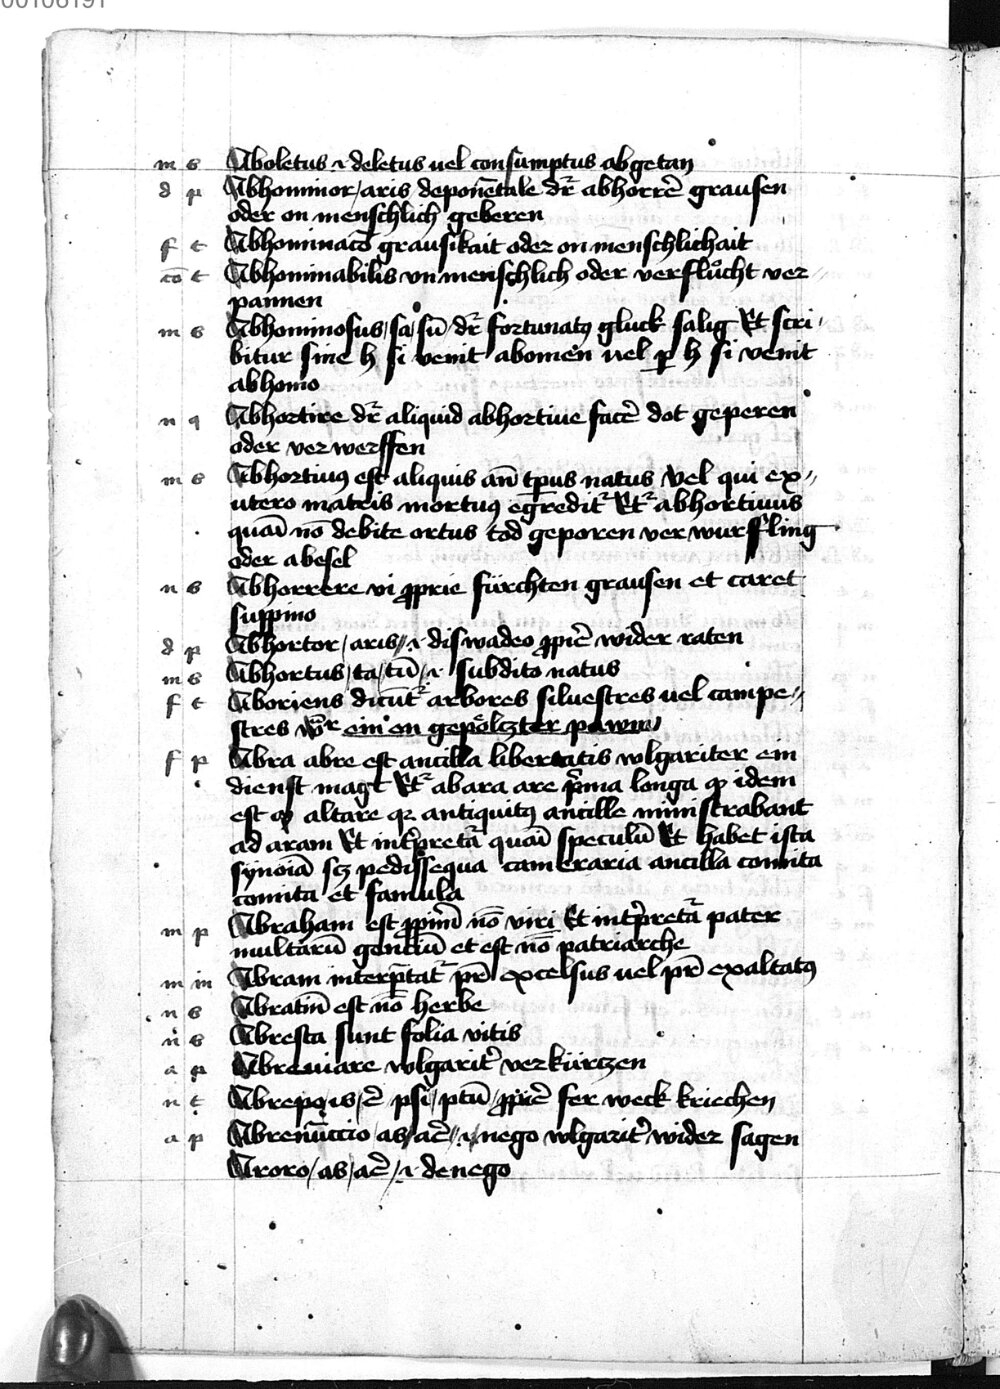 00106191
m s Aboletus .i. deletus uel consumptus abgetan
d p Abhominor / aris deponētale dr̄ abhorrē grausen
oder on menschlich geberen
f t Abhominacō grausikait oder on menschlichait
cō t Abhominabilis vn menschlich oder verflůcht ver⸗
pannen
m s Abhominosus / sa / sū / dr̄ fortunatꝰ gluck salig Et scri⸗
bitur sine h si venit abomen uel ꝑ h si venit
abhomo
n q Abhortire dr̄ aliquid abhortiue facē dot geperen
oder verwerffen
m s Abhortiuꝰ est aliquis an̄ tp̄us natus Vel qui ex⸗
utero mateis mortuꝰ egredit᷑ Et᷑ abhortiuus
quāi nō debite ortus tod geporen verwurffling
oder abesel
n s Abhorrere vi ꝓprie fürchten grausen et caret
suppino
d p Abhortor / aris // .i. diswadeo ꝓpiē wider raten
m s Abhortus / ta / tū / .i. subdito natus
f t Aboriens dicūt᷑ arbores siluestres uel campe⸗
stres wr̄ ein on gepőlczter pawm
f p Abra abre est ancilla libertatis wlgariter ein
dienst magt Et᷑ abara are pͥma longa ꝙ idem
est ꝙ altare qꝛ antiquitꝰ ancille ministrabant
ad aram Et int̓pretā quāi speculū Et habet ista
synoīā scꝫ pedissequa cameraria ancilla comita
comita et famula
m p Abraham est ꝓpiū nō viri Et int̓pretā pater
multarū genciū et est nō patriarche
m m Abram interp̄tat᷑ pr̄ excelsus uel pr̄ exaltatꝰ
n s Abratū est nō herbe
n s Abresta sunt folia vitis
a p Abreuiare wlgarit̓ verkürczen
n t Abrepo / is / ē psi / ptū / ꝓpiē fer weck kriechen
a p Abrenūccio / as / aē / .i. nego wlgarit̓ wider sagen
Aroro / as / aē / .i. denego